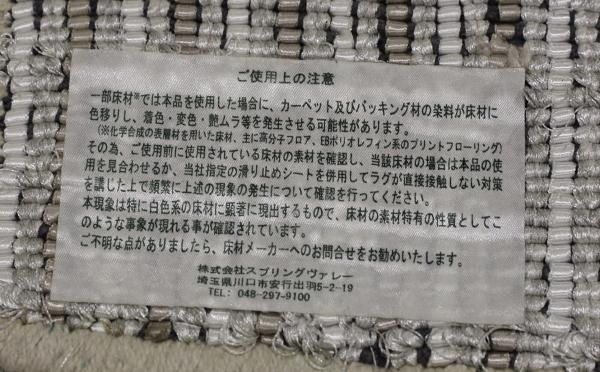 ご使用上の注意
一部床材※では本品を使用した場合に、カーペット及びパッキング材の染料が床材に
色移りし、着色・変色・艶ムラ等を発生させる可能性があります。
(※化学合成の表層材を用いた床材、主に高分子フロア、EBポリオレフィン系のプリントフローリング)
その為、ご使用前に使用されている床材の素材を確認し、当該床材の場合は本品の使
用を見合わせるか、当社指定の滑り止めシートを併用してラグが直接接触しない対策
を講じた上で頻繁に上述の現象の発生について確認を行ってください。
本現象は特に白色系の床材に顕著に現出するもので、床材の素材特有の性質としてこ
のような事象が現れる事が確認されています。
ご不明な点がありましたら、床材メーカーへのお問合せをお勧めいたします。
株式会社スプリングヴァレー
埼玉県川口市安行出羽5-2-19
TEL: 048-297-9100